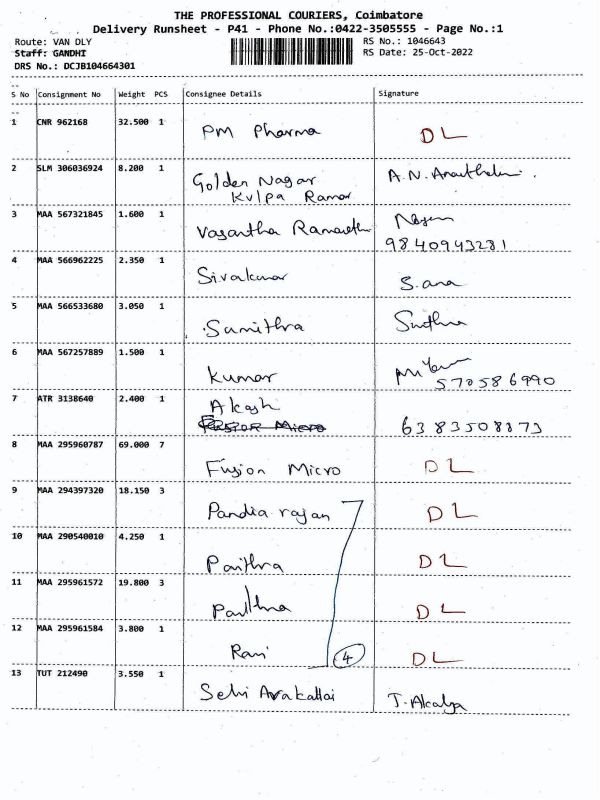 THE PROFESSIONAL COURIERS, Coimbatore
Delivery Runsheet - P41 - Phone No.:0422-3505555 - Page No.:1
Route: VAN DLY RS No.: 1046643
Staff: GANDHI RS Date: 25-Oct-2022
DRS No.: DCJB104664301
S No Consignment No Weight PCS Consignee Details Signature
1 CNR 962168 32.500 1 PM Pharma DL
2 SLM 306036924 8.200 1 Golden Nagar A.N.
Kvlpa Ramar
3 MAA 567321845 1.600 1 Vasantha
9840943281
4 MAA 566962225 2.350 1 Sivakumar S.ana
5 MAA 566533680 3.050 1 Sumithra
6 MAA 567257889 1.500 1 Kumar
570586990
7 ATR 3138640 2.400 1 Akash
Micro 6383508873
8 MAA 295960787 69.000 7 Fusion Micro DL
9 MAA 294397320 18.150 3 Pandia rajan DL
10 MAA 290540010 4.250 1 Pavithra DL
11 MAA 295961572 19.800 3 DL
12 MAA 295961584 3.800 1 Rani 4 DL
13 TUT 212490 3.550 1 Selvi